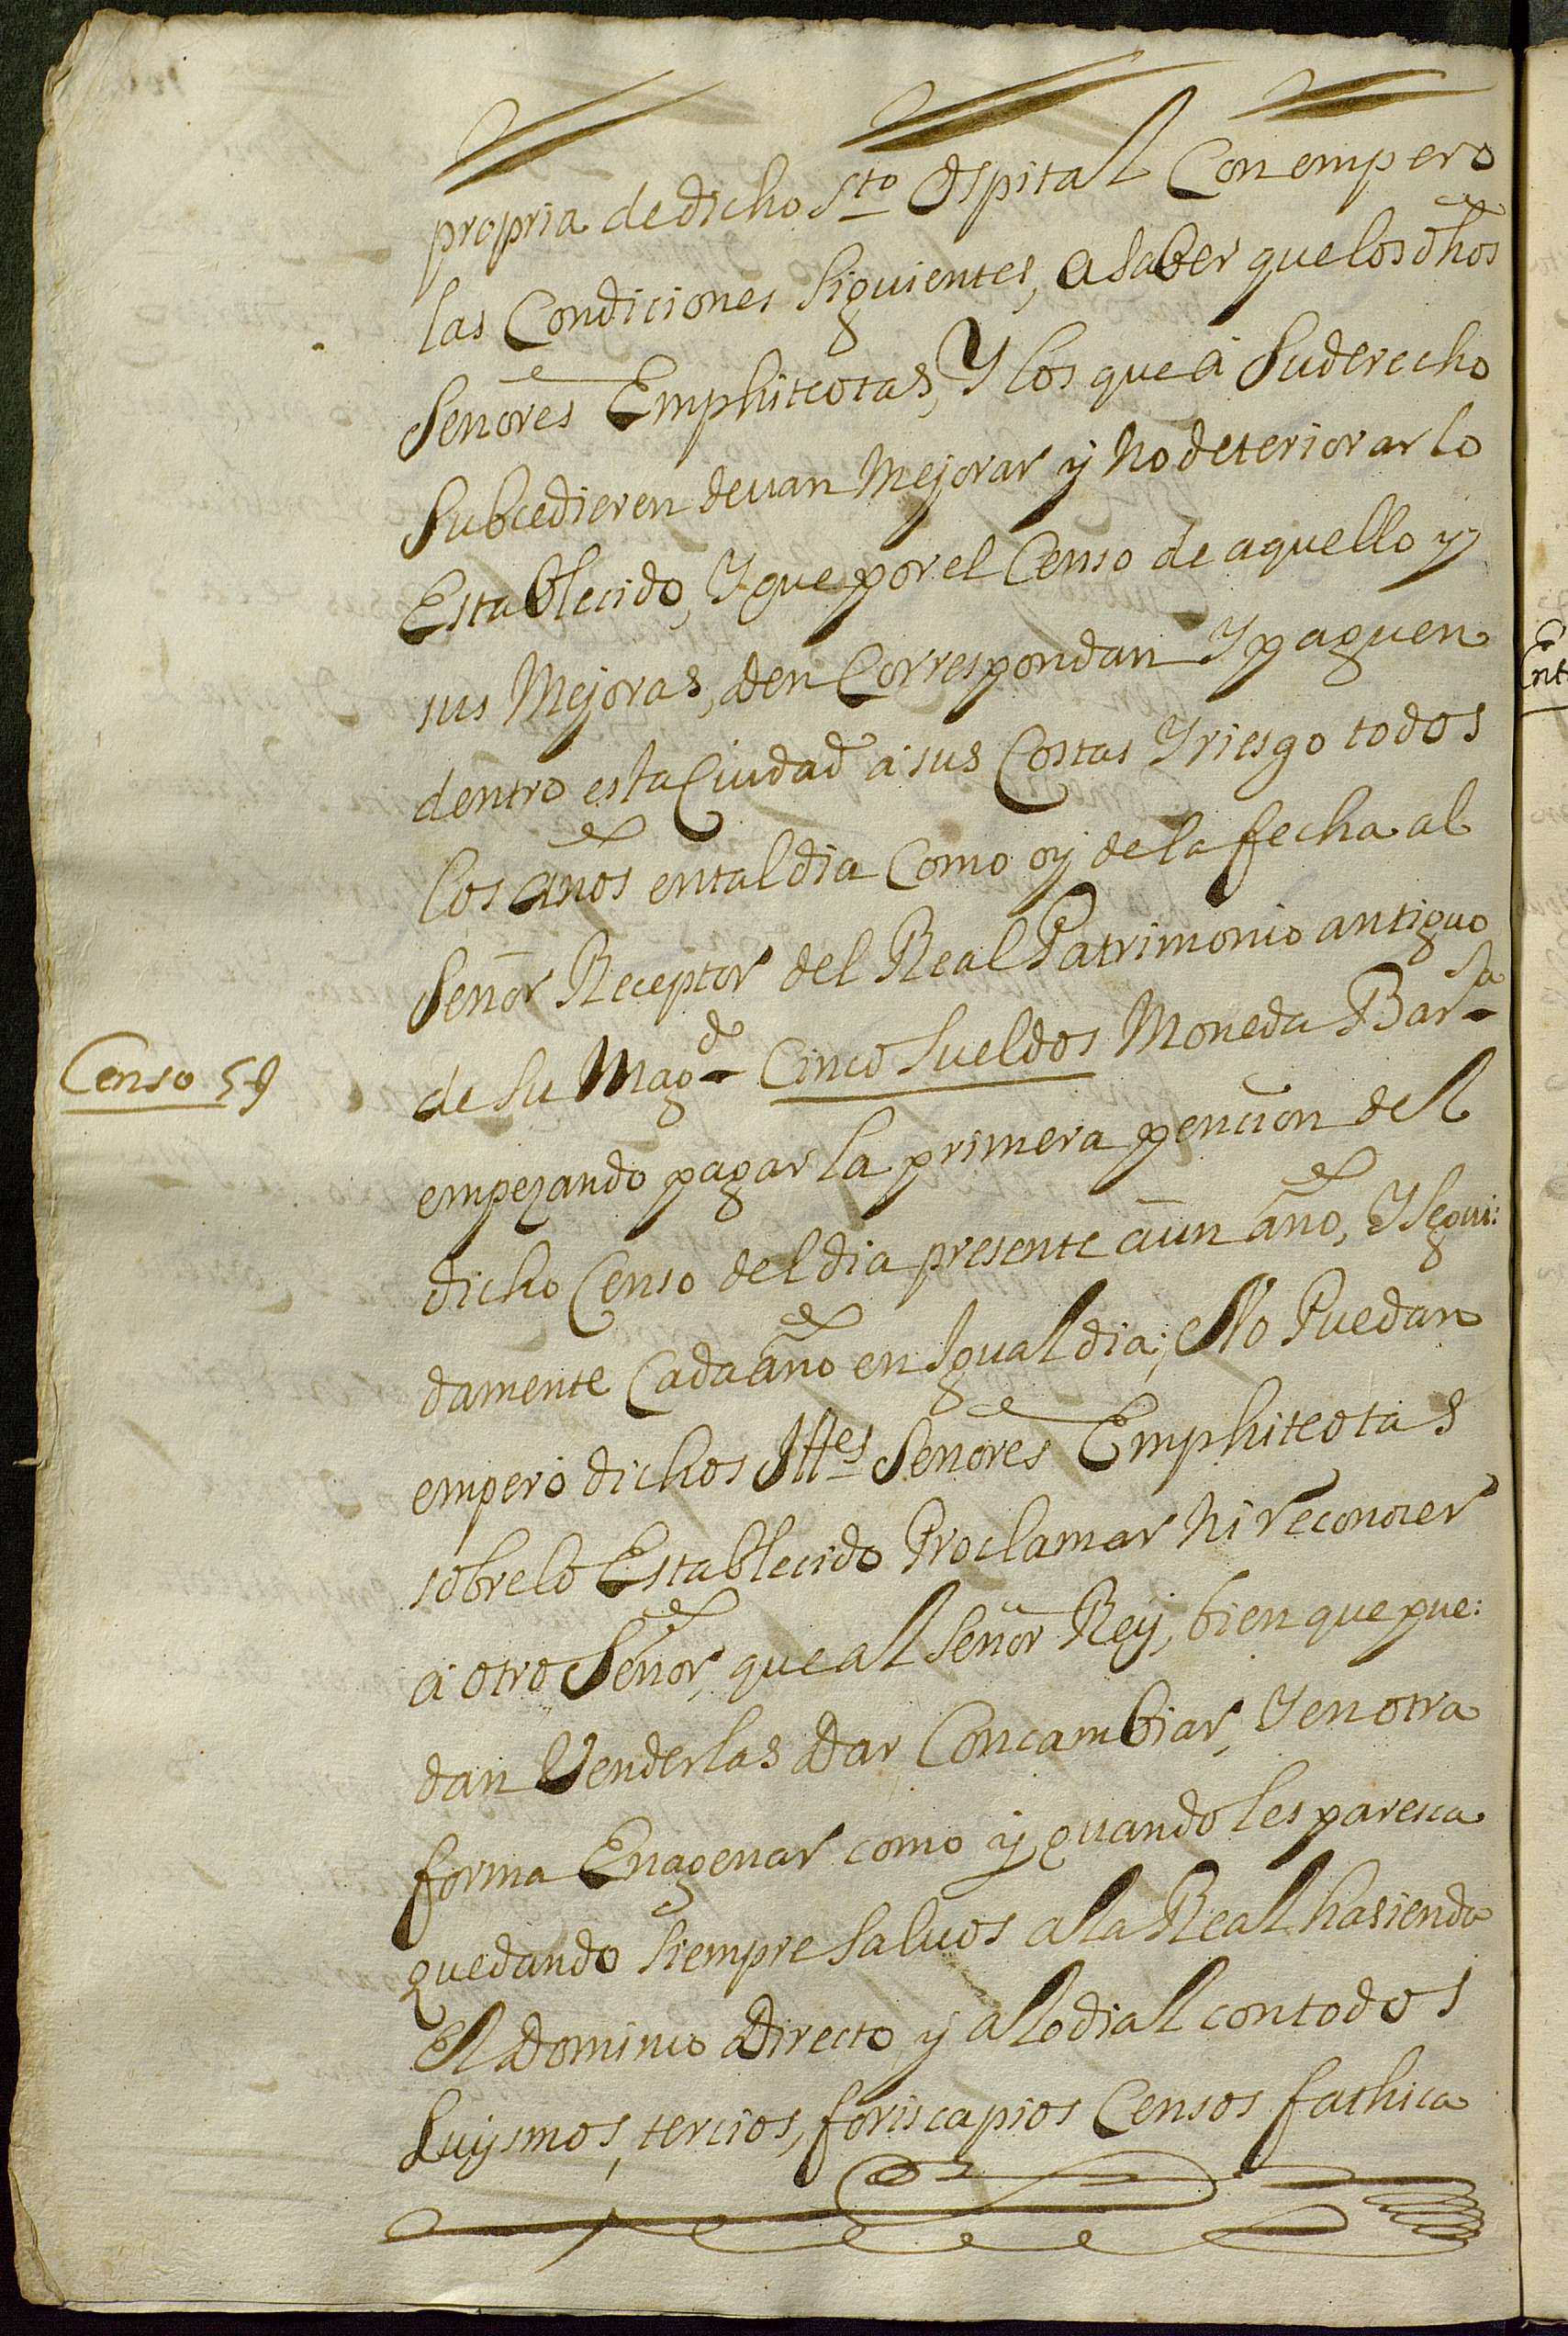 propria de dicho Sto Ospital Con empero
las Condiciones Siguientes, a saber que los dhos
Señores Emphiteotas, Y los que á Su derecho
Subcedieren devan Mejorar y No deteriorar lo
Establecido, Y que por el Censo de aquello y
sus Mejoras, den Correspondan Y paguen
dentro esta Ciudad á sus Costas Y riesgo todos
los años en tal dia Como oy de la fecha al
Señor Receptor del Real Patrimonio antiguo
Censo 5 9
de Su Magd Cinco Sueldos Moneda Barsa
empezando pagar la primera pencion del
dicho Censo del dia presente á un año, Y Segui:
damente Cada año en Igual dia; No Puedan
empero dichos Illes Señores Emphiteotas
sobre lo Establecido Proclamar Ni reconocer
á otro Señor, que al Señor Rey, bien que pue:
dan Venderlas Dar Concambiar, Y en otra
forma Enagenar como y quando les paresca
quedando Siempre Salvos a la Real hasienda
El Dominio Directo y alodial con todos
Luysmos, tercios, foriscapios Censos fathica